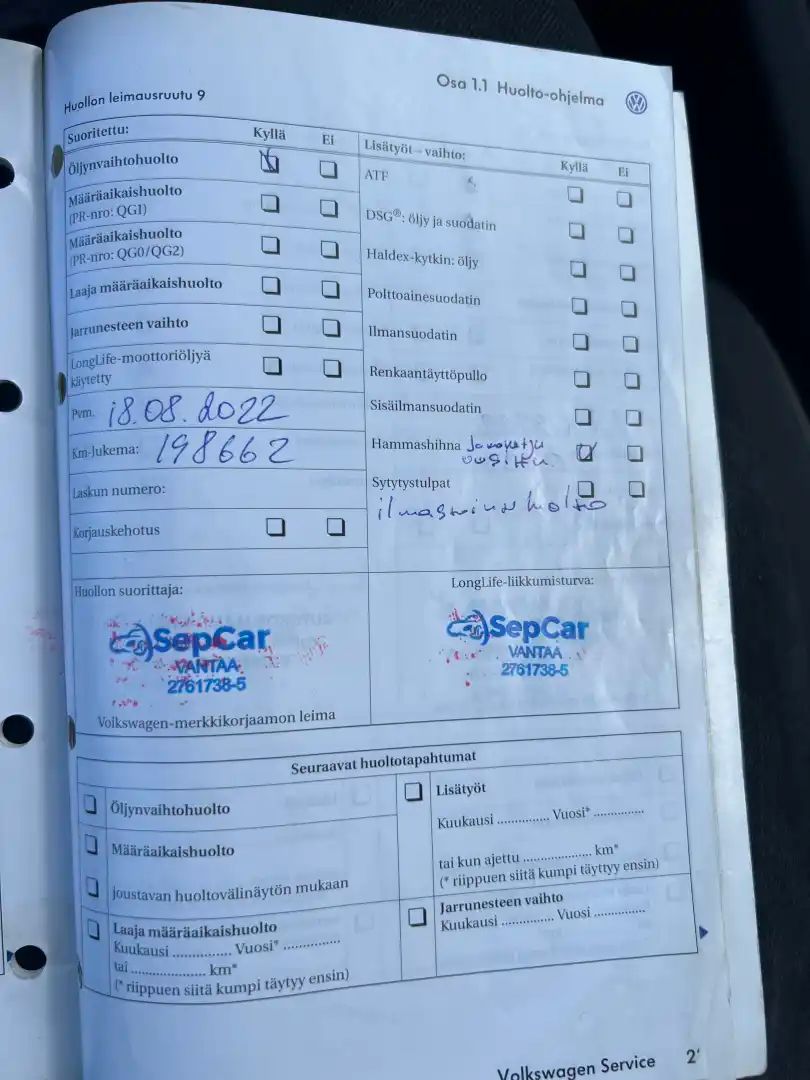 Osa 1.1 Huolto-ohjelma
Huollon leimausruutu 9
Suoritettu: Kyllä Ei
Öljynvaihtohuolto
Määräaikaishuolto
(PR-nro: QG1)
Määräaikaishuolto
(PR-nro: QG0/QG2)
Laaja määräaikaishuolto
Jarrunesteen vaihto
LongLife-moottoriöljyä
käytetty
Pvm. 18.08.2022
Km-lukema: 198662
Laskun numero:
Korjauskehotus
Lisätyöt – vaihto: Kyllä Ei
ATF
DSG®: öljy ja suodatin
Haldex-kytkin: öljy
Polttoainesuodatin
Ilmansuodatin
Renkaantäyttöpullo
Sisäilmansuodatin
Hammashihna Jakoketju
uusittu
Sytytystulpat
ilmastoinnin huolto
Huollon suorittaja:
SepCar
VANTAA
2761738-5
Volkswagen-merkkikorjaamon leima
LongLife-liikkumisturva:
SepCar
VANTAA
2761738-5
Seuraavat huoltotapahtumat
Öljynvaihtohuolto
Määräaikaishuolto
joustavan huoltovälinäytön mukaan
Laaja määräaikaishuolto
Kuukausi ............... Vuosi* ...............
tai .................... km*
(* riippuen siitä kumpi täytyy ensin)
Lisätyöt
Kuukausi .............. Vuosi* ..............
tai kun ajettu ................... km*
(* riippuen siitä kumpi täyttyy ensin)
Jarrunesteen vaihto
Kuukausi .............. Vuosi ..............
Volkswagen Service